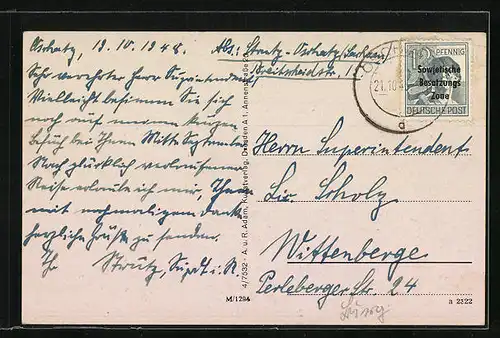 Oschatz, 19.10.1948. Abs: Strutz-Oschatz/Sachsen
Breitscheidstr. 1
Sehr verehrter Herr Superintendent
Vielleicht besinnen Sie sich
noch auf meinen kurzen
Besuch bei Ihnen Mitte September
Nach glücklich verlaufener
Reise erlaube ich mir, Ihnen
mit nochmaligem Dank
herzliche Grüße zu senden.
Ihr Strutz, Supdt. i. R.
4/7532 - A. u. R. Adam, Kunstverlag, Dresden A 1, Annenstraße
M/1294
12 PFENNIG
Sowjetische
Besatzungs
Zone
DEUTSCHE POST
21.10.4
d
Herrn Superintendent
Lic. Scholz
Wittenberge
Perleberger Str. 24
a 2322